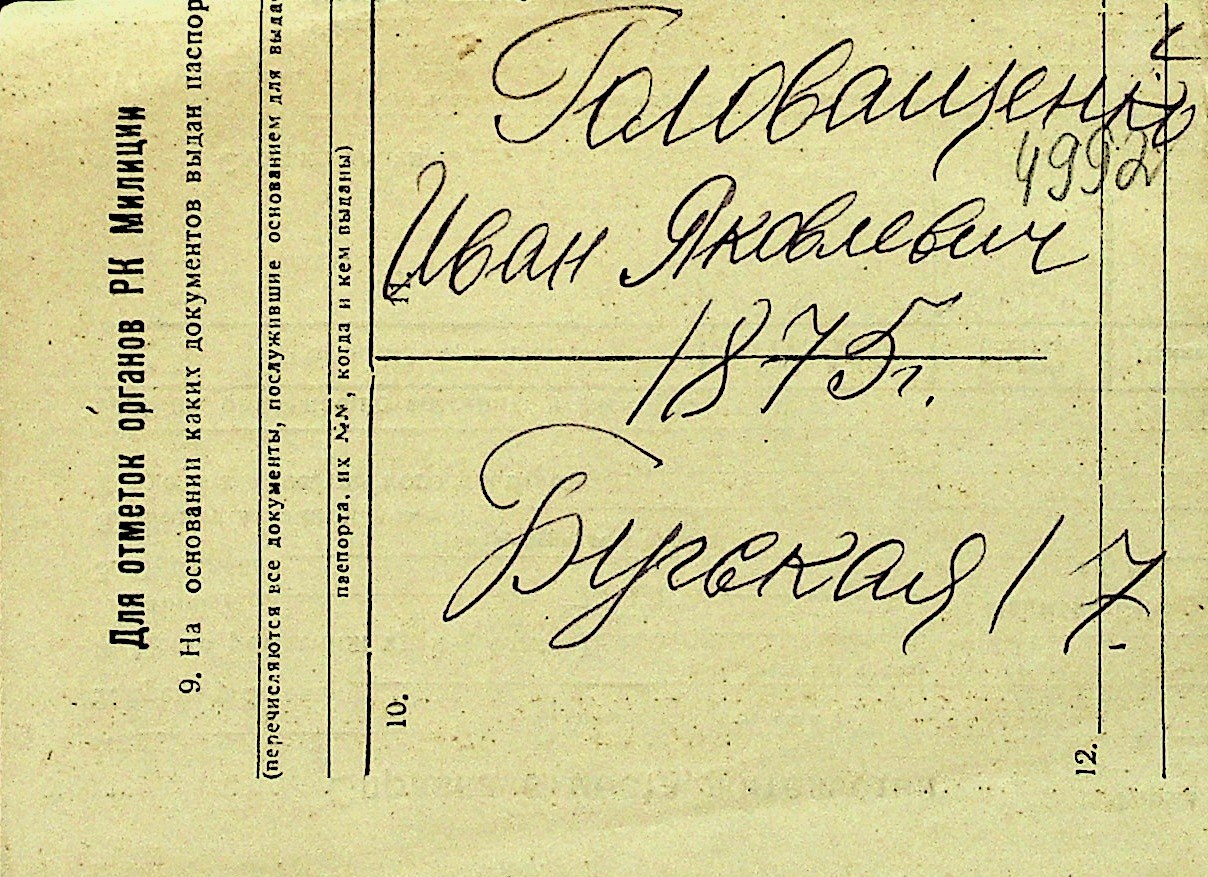 Головащенко
4992
Иван Яковлевич
1875г.
Бугская 17
Для отметок органов РК Милиции
9. На основании каких документов выдан паспор
(перечисляются все документы, послужившие основанием для выда
паспорта, их №№, когда и кем выданы)
10.
11.
12.